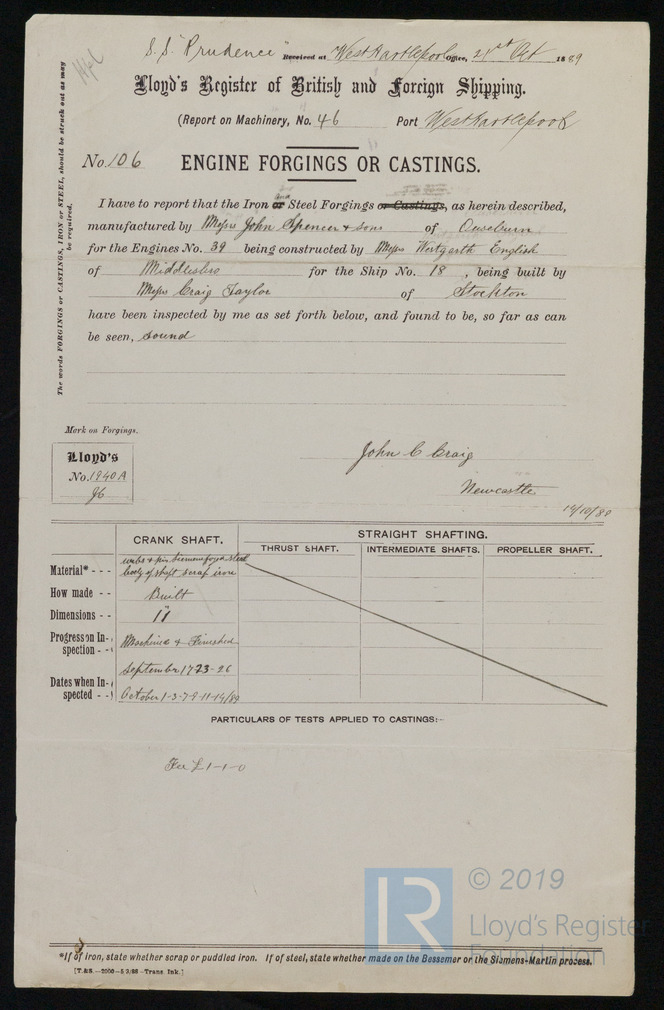 S.S. "Prudence" Received at West Hartlepool Office, 21st Oct 1889
Lloyd's Register of British and Foreign Shipping.
(Report on Machinery, No. 46 Port West Hartlepool
No. 106 ENGINE FORGINGS OR CASTINGS.
The words FORGINGS or CASTINGS, IRON or STEEL, should be struck out as may
be required.
and
I have to report that the Iron or Steel Forgings or Castings, as herein described,
manufactured by Messrs John Spencer & sons of Ouseburn
for the Engines No. 39 being constructed by Messrs Westgarth English
of Middlesbro for the Ship No. 18, being built by
Messrs Craig Taylor of Stockton
have been inspected by me as set forth below, and found to be, so far as can
be seen, sound
Mark on Forgings.
Lloyd's
No. 1940A
John C Craig
Newcastle
14/10/89
CRANK SHAFT. STRAIGHT SHAFTING.
THRUST SHAFT. INTERMEDIATE SHAFTS. PROPELLER SHAFT.
Material* - - - webs & pin Siemens forged steel
body of shaft scrap iron
How made - - Built
Dimensions - - 11"
Progress on In-
spection - - Machined & Finished
Dates when In-
spected - - September 17 23-26
October 1-3-7-9-11-14/89
PARTICULARS OF TESTS APPLIED TO CASTINGS:-
Fee £1-1-0
© 2019
LR
Lloyd's Register
Foundation
*If of iron, state whether scrap or puddled iron. If of steel, state whether made on the Bessemer or the Siemens-Martin process.
[T.&S.--2000--5/3/88--Trans Ink.]